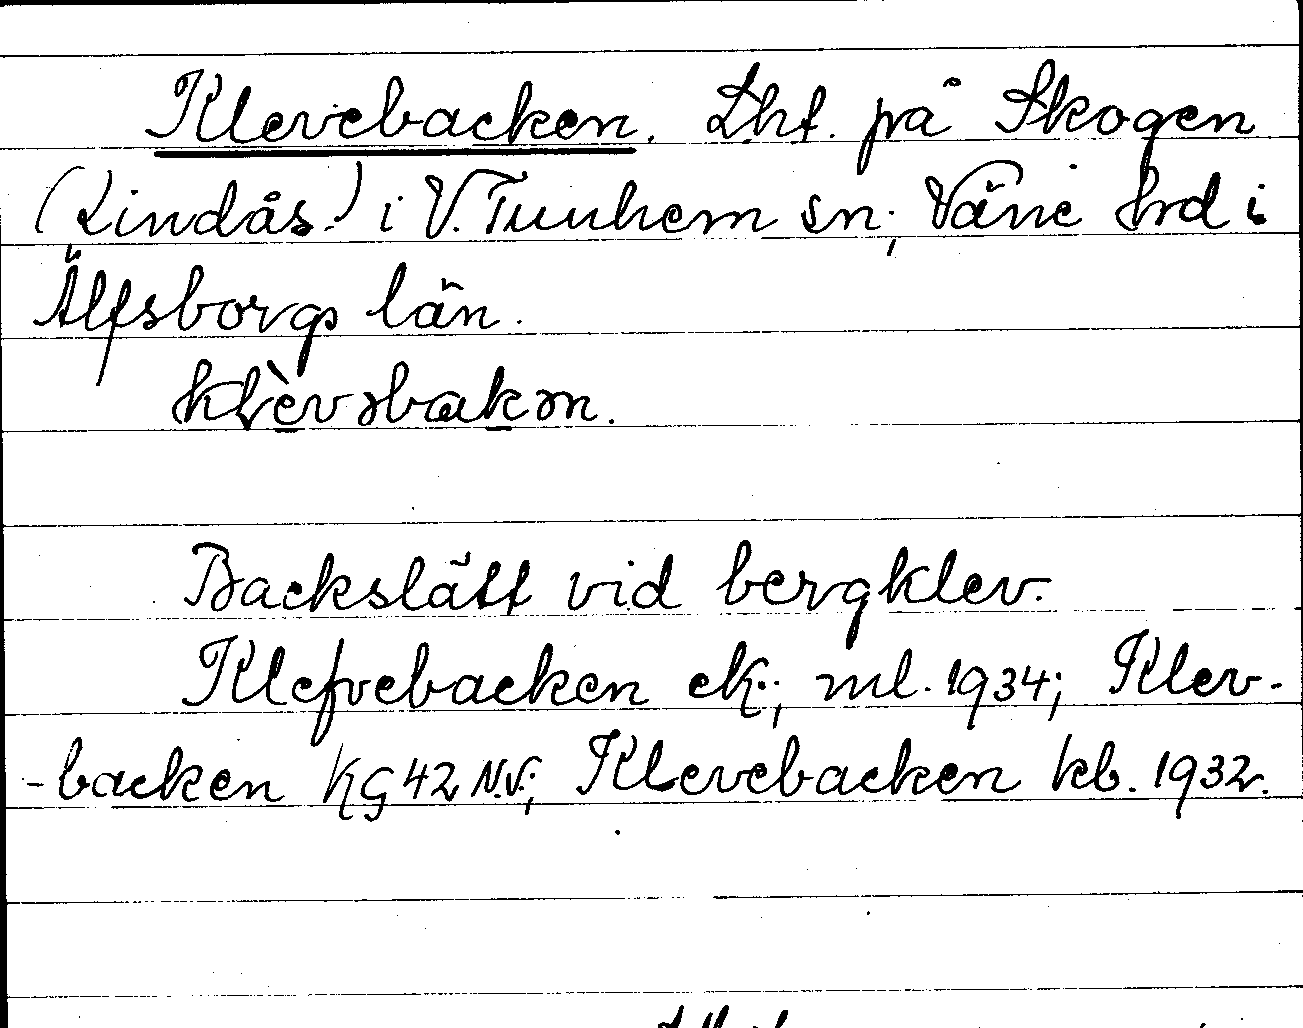 Klevebacken. Lht. på Skogen
(Lindås) i V. Tunhem sn; Väne hrd i
Älfsborgs län.
klèvəbakən.
Backslätt vid bergklev.
Klefvebacken ek.; ml. 1934; Klev-
-backen KG 42 N.V.; Klevebacken kb. 1932.